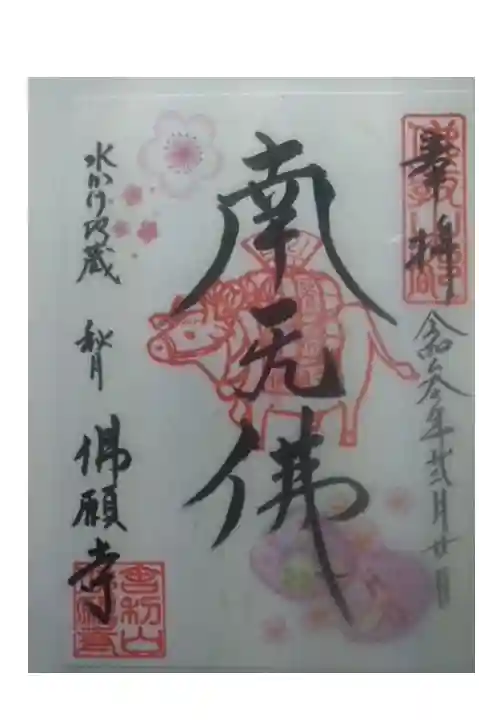 奉拝
令和参年弐月廿日
南无佛
水かけ地蔵 秋月
佛願寺